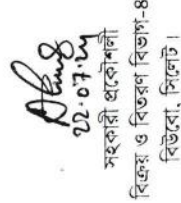 ২২.০৭.২৫
সহকারী প্রকৌশলী
বিক্রয় ও বিতরণ বিভাগ-৪
বিউবো, সিলেট।